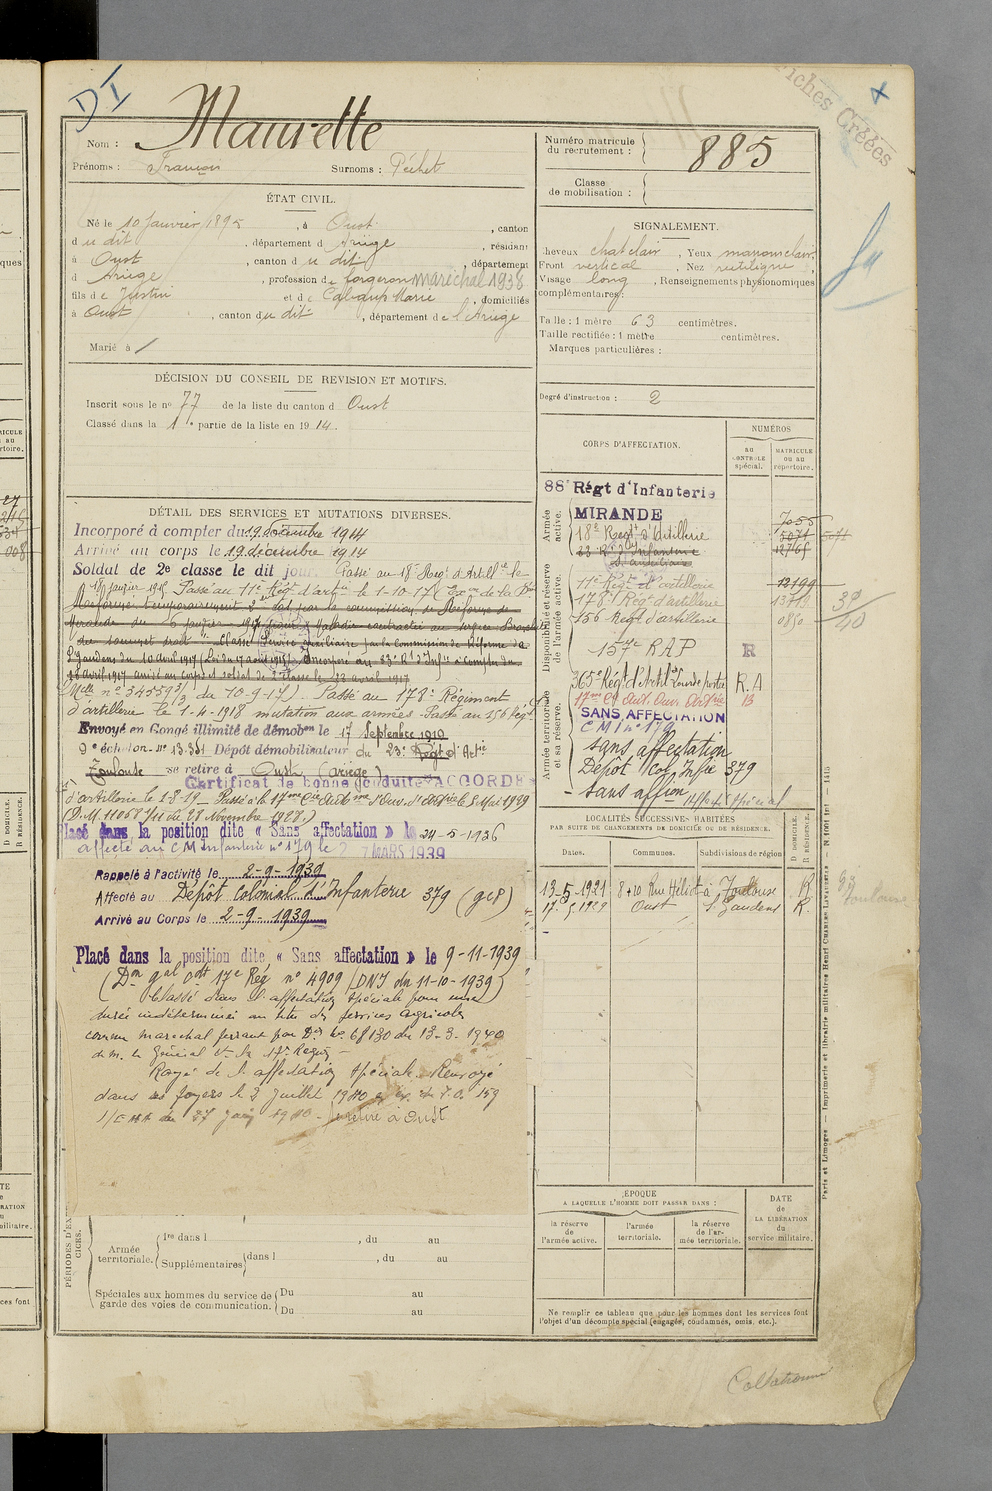 DI
Fiches Créées
Nom : Maurette
Prénoms : François Surnoms : Péchet
Numéro matricule du recrutement : 885
Classe de mobilisation :
ÉTAT CIVIL.
Né le 10 Janvier 1895, à Oust, canton
du dit, département d Ariège, résidant
à Oust, canton du dit, département
d Ariège, profession de forgeron maréchal 1938
fils de Justin et de Marie, domiciliés
à Oust, canton du dit, département de l'Ariège
Marié à /
SIGNALEMENT.
Cheveux chat clair, Yeux marron clair,
Front vertical, Nez rectiligne,
Visage long, Renseignements physionomiques
complémentaires :
Taille : 1 mètre 63 centimètres.
Taille rectifiée : 1 mètre centimètres.
Marques particulières :
Degré d'instruction : 2
DÉCISION DU CONSEIL DE REVISION ET MOTIFS.
Inscrit sous le no 77 de la liste du canton d Oust
Classé dans la 1e partie de la liste en 1914.
DÉTAIL DES SERVICES ET MUTATIONS DIVERSES.
Incorporé à compter du 19 décembre 1914
Arrivé au corps le 19 décembre 1914
Soldat de 2e classe le dit jour. Passé au 18e Régt d'Artillie le
18 janvier 1915 Passé au 11e Régt d'artie le 1-10-17 (
Réformé temporairement par la commission de Réforme de
Mirande du 6 janvier 1917
Classé Service auxiliaire par la Commission de Réforme de
St Gaudens du 10 avril 1917 Incorporé au 23e Rt d'Infie à compter du
23 avril 1917 arrivé au corps et soldat de 2e classe le 23 avril 1917
du 10-9-17) Passé au 178e Régiment
d'artillerie le 1-4-1918 mutation aux armées. Passé au 156 Régt
Envoyé en Congé illimité de démobon le 17 Septembre 1919
9e échelon no 13.331 Dépôt démobilisateur du 23e Régt d'Artie
Toulouse se retire à Oust (Ariège)
Certificat de bonne conduite ACCORDÉ
d'artillerie le 1-8-19 — Passé à la 17me Cie Autme d'Ouv. d'Artie le 5 Mai 1929
(D.M. 11058 du 28 Novembre 1928)
Placé dans la position dite « Sans affectation » le 24-5-1936
affecté au CM Infanterie no 179 le 27 MARS 1939
Rappelé à l'activité le 2-9-1939
Affecté au Dépôt Colonial d'Infanterie 379 (gcP)
Arrivé au Corps le 2-9-1939
Placé dans la position dite « Sans affectation » le 9-11-1939
(Don gal Cdt 17e Rég no 4909/DNJ du 11-10-1939)
Classé dans l'affectation spéciale pour une
durée indéterminée au titre des services agricoles
comme maréchal ferrant par Don no 68130 du 13-3-1940
de M. le Général Ct la 17e Région —
Rayé de l'affectation spéciale. Renvoyé
dans ses foyers le 3 juillet 1940
retiré à Oust
PÉRIODES D'EXERCICES.
Armée territoriale.
1re dans l , du au
Supplémentaires dans l , du au
Spéciales aux hommes du service de garde des voies de communication.
Du au
Du au
CORPS D'AFFECTATION.
NUMÉROS
AU CONTRÔLE spécial.
MATRICULE OU AU répertoire.
Armée active.
Disponibilité et réserve de l'armée active.
Armée territoriale et sa réserve.
88e Régt d'Infanterie
MIRANDE 7055
18e Régt d'Artillerie 5071
23 Rgt d'Infanterie 12765
S. auxiliaire
11e Régt d'artillerie 12199
178e Régt d'artillerie 13713
156 Régt d'artillerie 0850
157e RAP R
365e Régt d'Artil Lourde portée R.A
17me Cie Aut. Ouv. Artrie B
SANS AFFECTATION
CMI no 179
sans affectation
Dépôt Col. Infie 379
Sans affon
Affon Spécial
LOCALITÉS SUCCESSIVES HABITÉES
PAR SUITE DE CHANGEMENTS DE DOMICILE OU DE RÉSIDENCE.
Dates. Communes. Subdivisions de région
D DOMICILE. R RÉSIDENCE.
13-5-1921 8 & 10 Rue Héliot à Toulouse R
17-5-1929 Oust St Gaudens R.
ÉPOQUE
A LAQUELLE L'HOMME DOIT PASSER DANS :
la réserve de l'armée active.
l'armée territoriale.
la réserve de l'armée territoriale.
DATE de LA LIBÉRATION du service militaire.
Ne remplir ce tableau que pour les hommes dont les services font
l'objet d'un décompte spécial (engagés, condamnés, omis, etc.).
Paris et Limoges. — Imprimerie et librairie militaires Henri CHARLES-LAVAUZELLE
Toulouse
Collationné